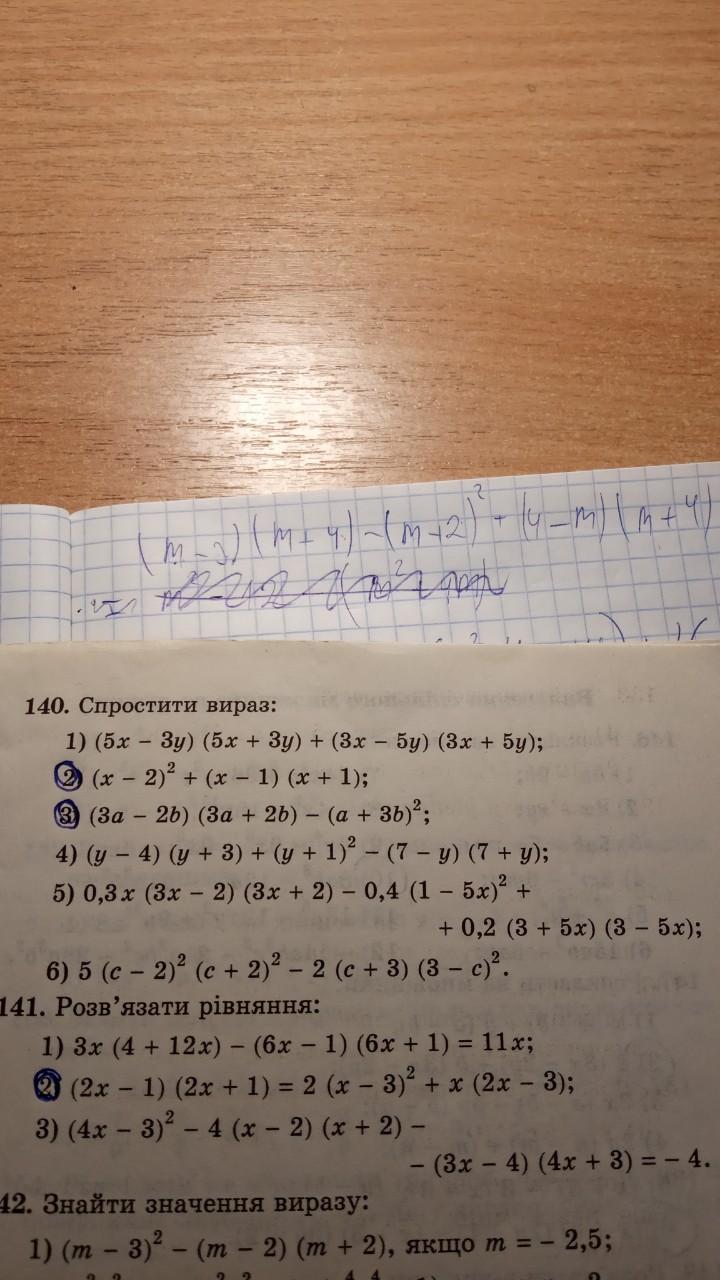 (m - 3)(m + 4) - (m + 2)² + (4 - m)(m + 4)
140. Спростити вираз:
1) (5x − 3y) (5x + 3y) + (3x − 5y) (3x + 5y);
2) (x − 2)² + (x − 1) (x + 1);
3) (3a − 2b) (3a + 2b) − (a + 3b)²;
4) (y − 4) (y + 3) + (y + 1)² − (7 − y) (7 + y);
5) 0,3x (3x − 2) (3x + 2) − 0,4 (1 − 5x)² +
+ 0,2 (3 + 5x) (3 − 5x);
6) 5 (c − 2)² (c + 2)² − 2 (c + 3) (3 − c)².
141. Розв’язати рівняння:
1) 3x (4 + 12x) − (6x − 1) (6x + 1) = 11x;
2) (2x − 1) (2x + 1) = 2 (x − 3)² + x (2x − 3);
3) (4x − 3)² − 4 (x − 2) (x + 2) −
− (3x − 4) (4x + 3) = − 4.
42. Знайти значення виразу:
1) (m − 3)² − (m − 2) (m + 2), якщо m = − 2,5;